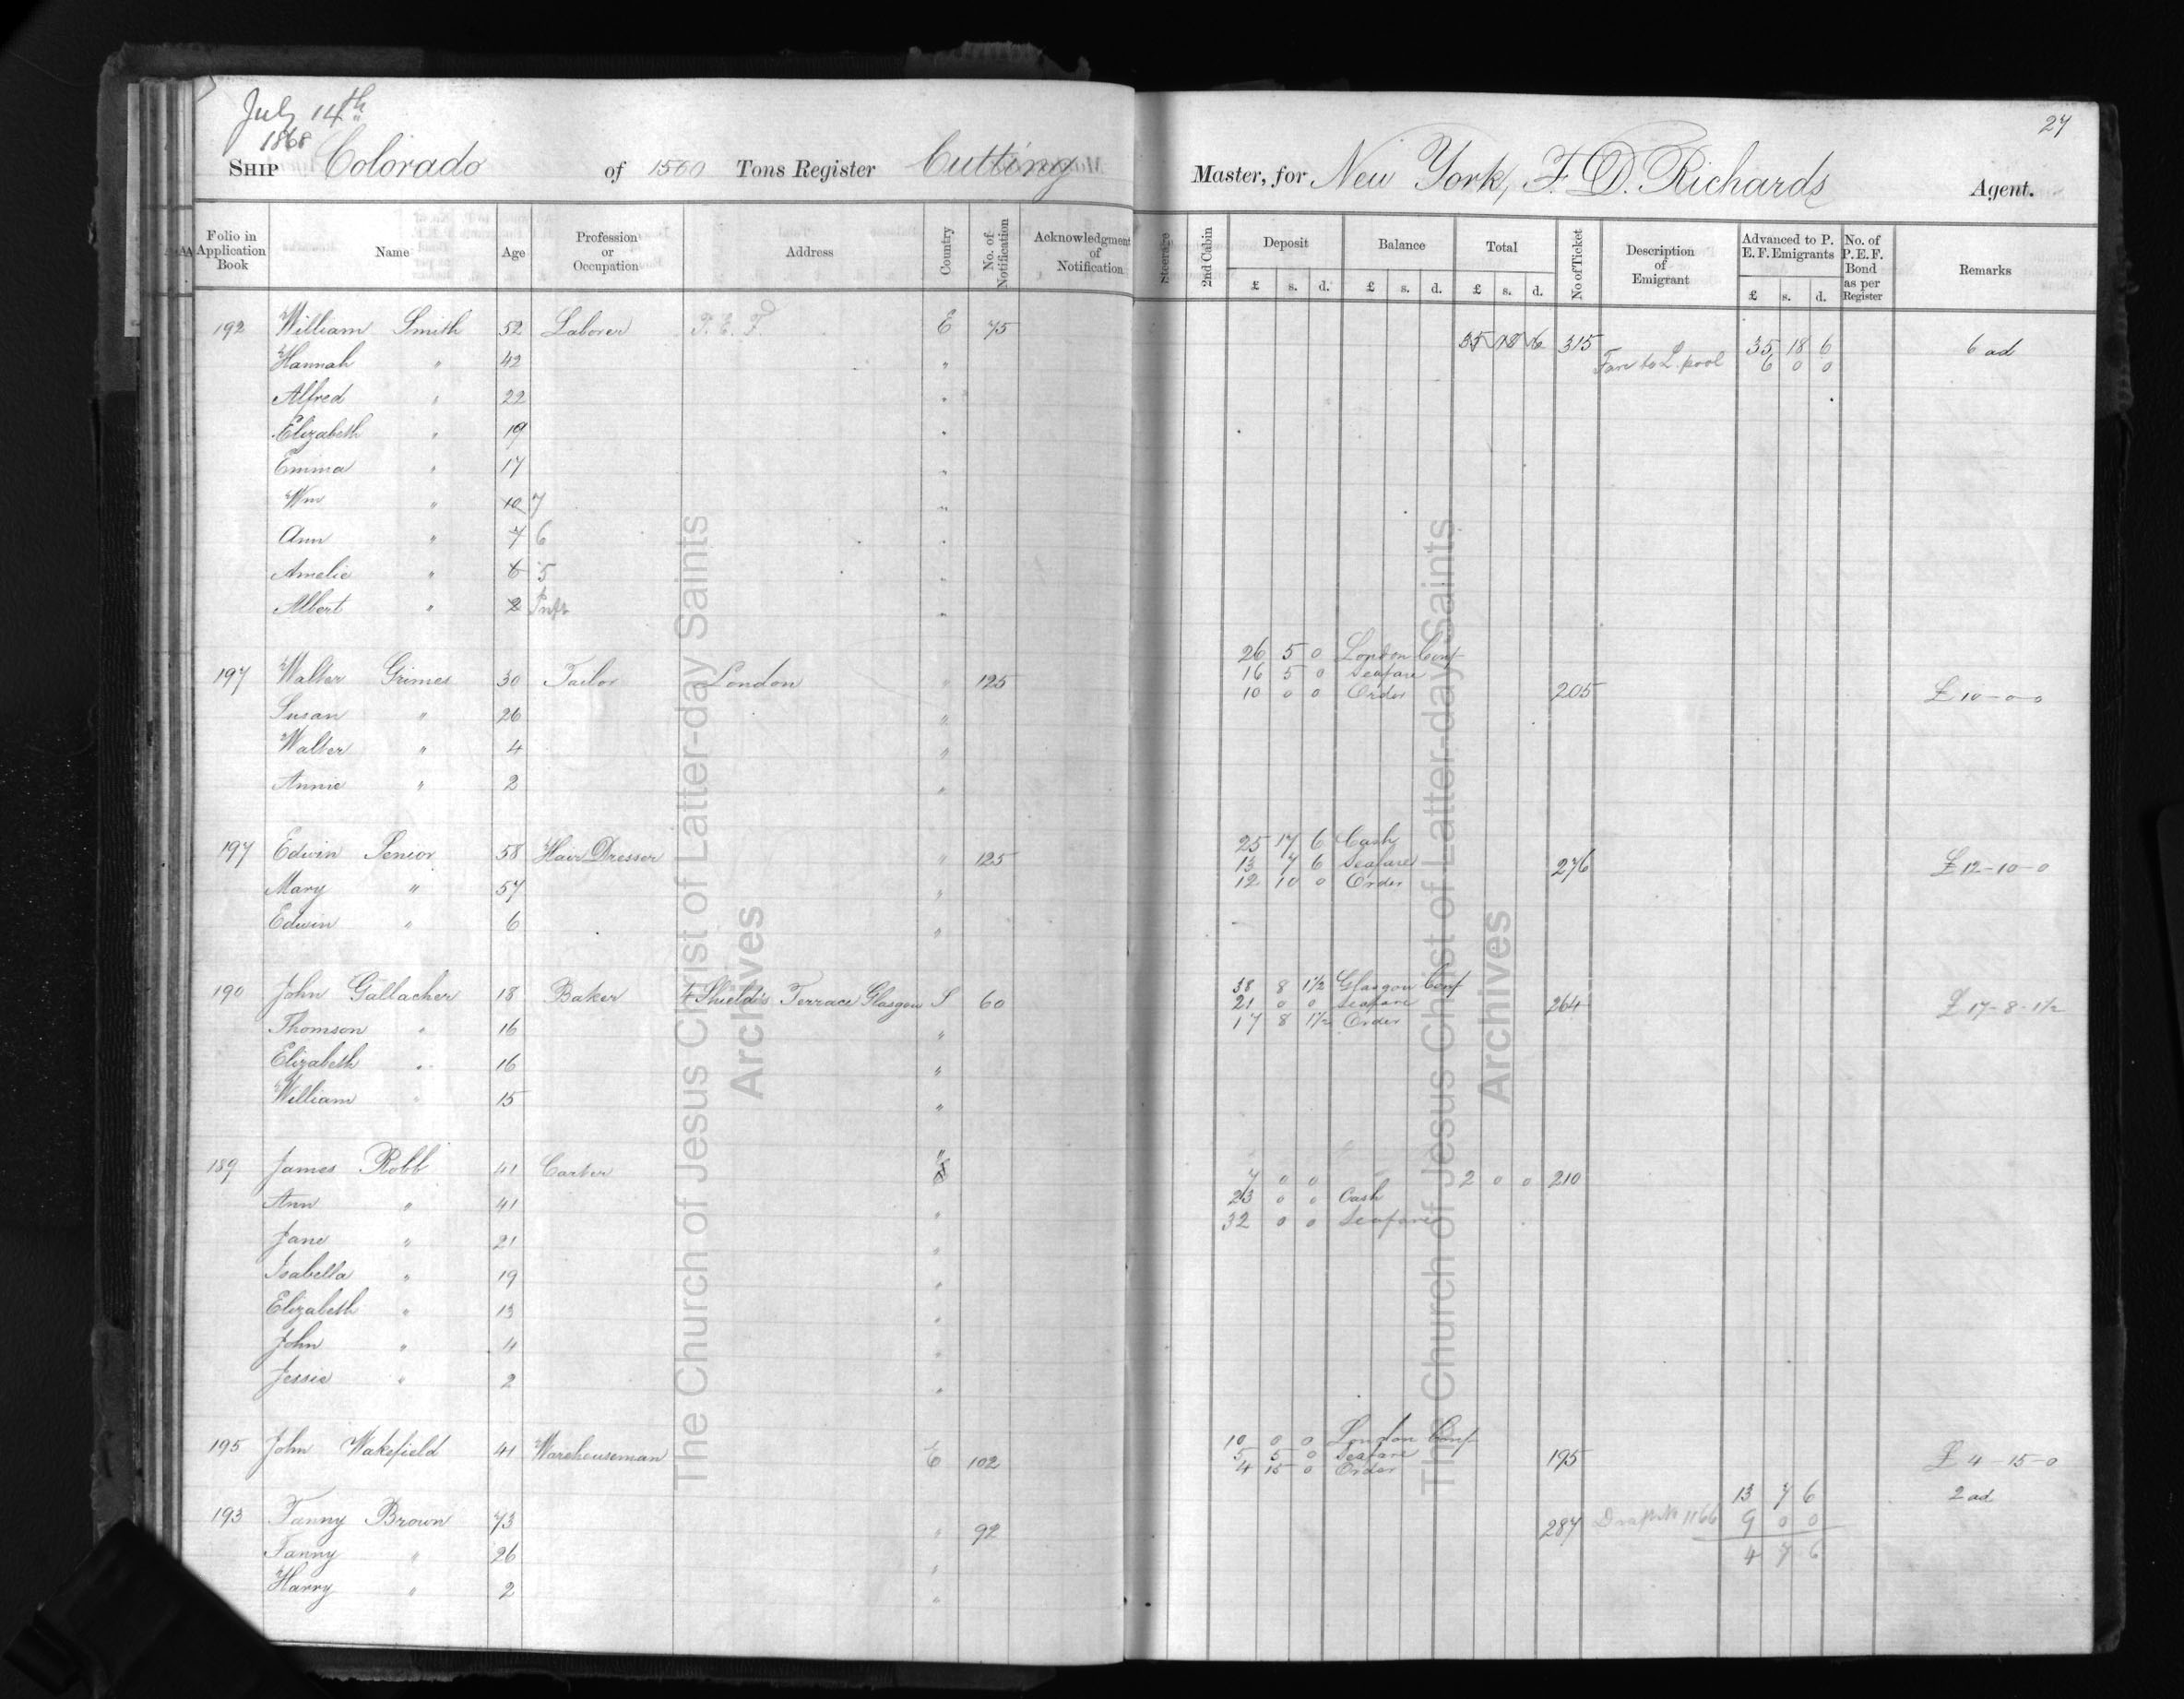 July 14th
1868
27
SHIP Colorado of 1500 Tons Register Cutting Master, for New York, F. D. Richards Agent.
Folio in Application Book | Name | Age | Profession or Occupation | Address | Country | No. of Notification | Acknowledgment of Notification | Steerage | 2nd Cabin | Deposit £ s. d. | Balance £ s. d. | Total £ s. d. | No of Ticket | Description of Emigrant | Advanced to P. E. F. Emigrants £ s. d. | No. of P.E.F. Bond as per Register | Remarks
192 William Smith 52 Laborer P. E. F. E 75 35 18 6 315 35 18 6 6 ad
Hannah " 42 " Fare to L.pool 6 0 0
Alfred " 22 "
Elizabeth " 19 "
Emma " 17 "
Wm " 10 7 "
Ann " 7 6 "
Amelie " 6 5 "
Albert " 2 Inft "
26 5 0 London Conf
197 Walter Grimes 30 Tailor London " 125 16 5 0 Seafare
10 0 0 Order 205 £10-0-0
Susan " 26 "
Walter " 4 "
Annie " 2 "
25 17 6 Cash
197 Edwin Senior 58 Hair Dresser " 125 13 7 6 Seafare 276 £12-10-0
12 10 0 Order
Mary " 57 "
Edwin " 6 "
38 8 1½ Glasgow Conf
190 John Gallacher 18 Baker 4 Shields Terrace Glasgow S 60 21 0 0 Seafare 264 £17-8-1½
17 8 1½ Order
Thomson " 16 "
Elizabeth " 16 "
William " 15 "
189 James Robb 41 Carter " 7 0 0 2 0 0 210
Ann " 41 " 23 0 0 Cash
32 0 0 Seafare
Jane " 21 "
Isabella " 19 "
Elizabeth " 13 "
John " 4 "
Jessie " 2 "
10 0 0 London Conf
195 John Wakefield 41 Warehouseman E 102 5 5 0 Seafare 195 £4-15-0
4 15 0 Order
13 7 6 2 ad
193 Fanny Brown 73 " 92 287 Draft No 1166 9 0 0
4 7 6
Fanny " 26 "
Harry " 2 "
The Church of Jesus Christ of Latter-day Saints
Archives
The Church of Jesus Christ of Latter-day Saints
Archives